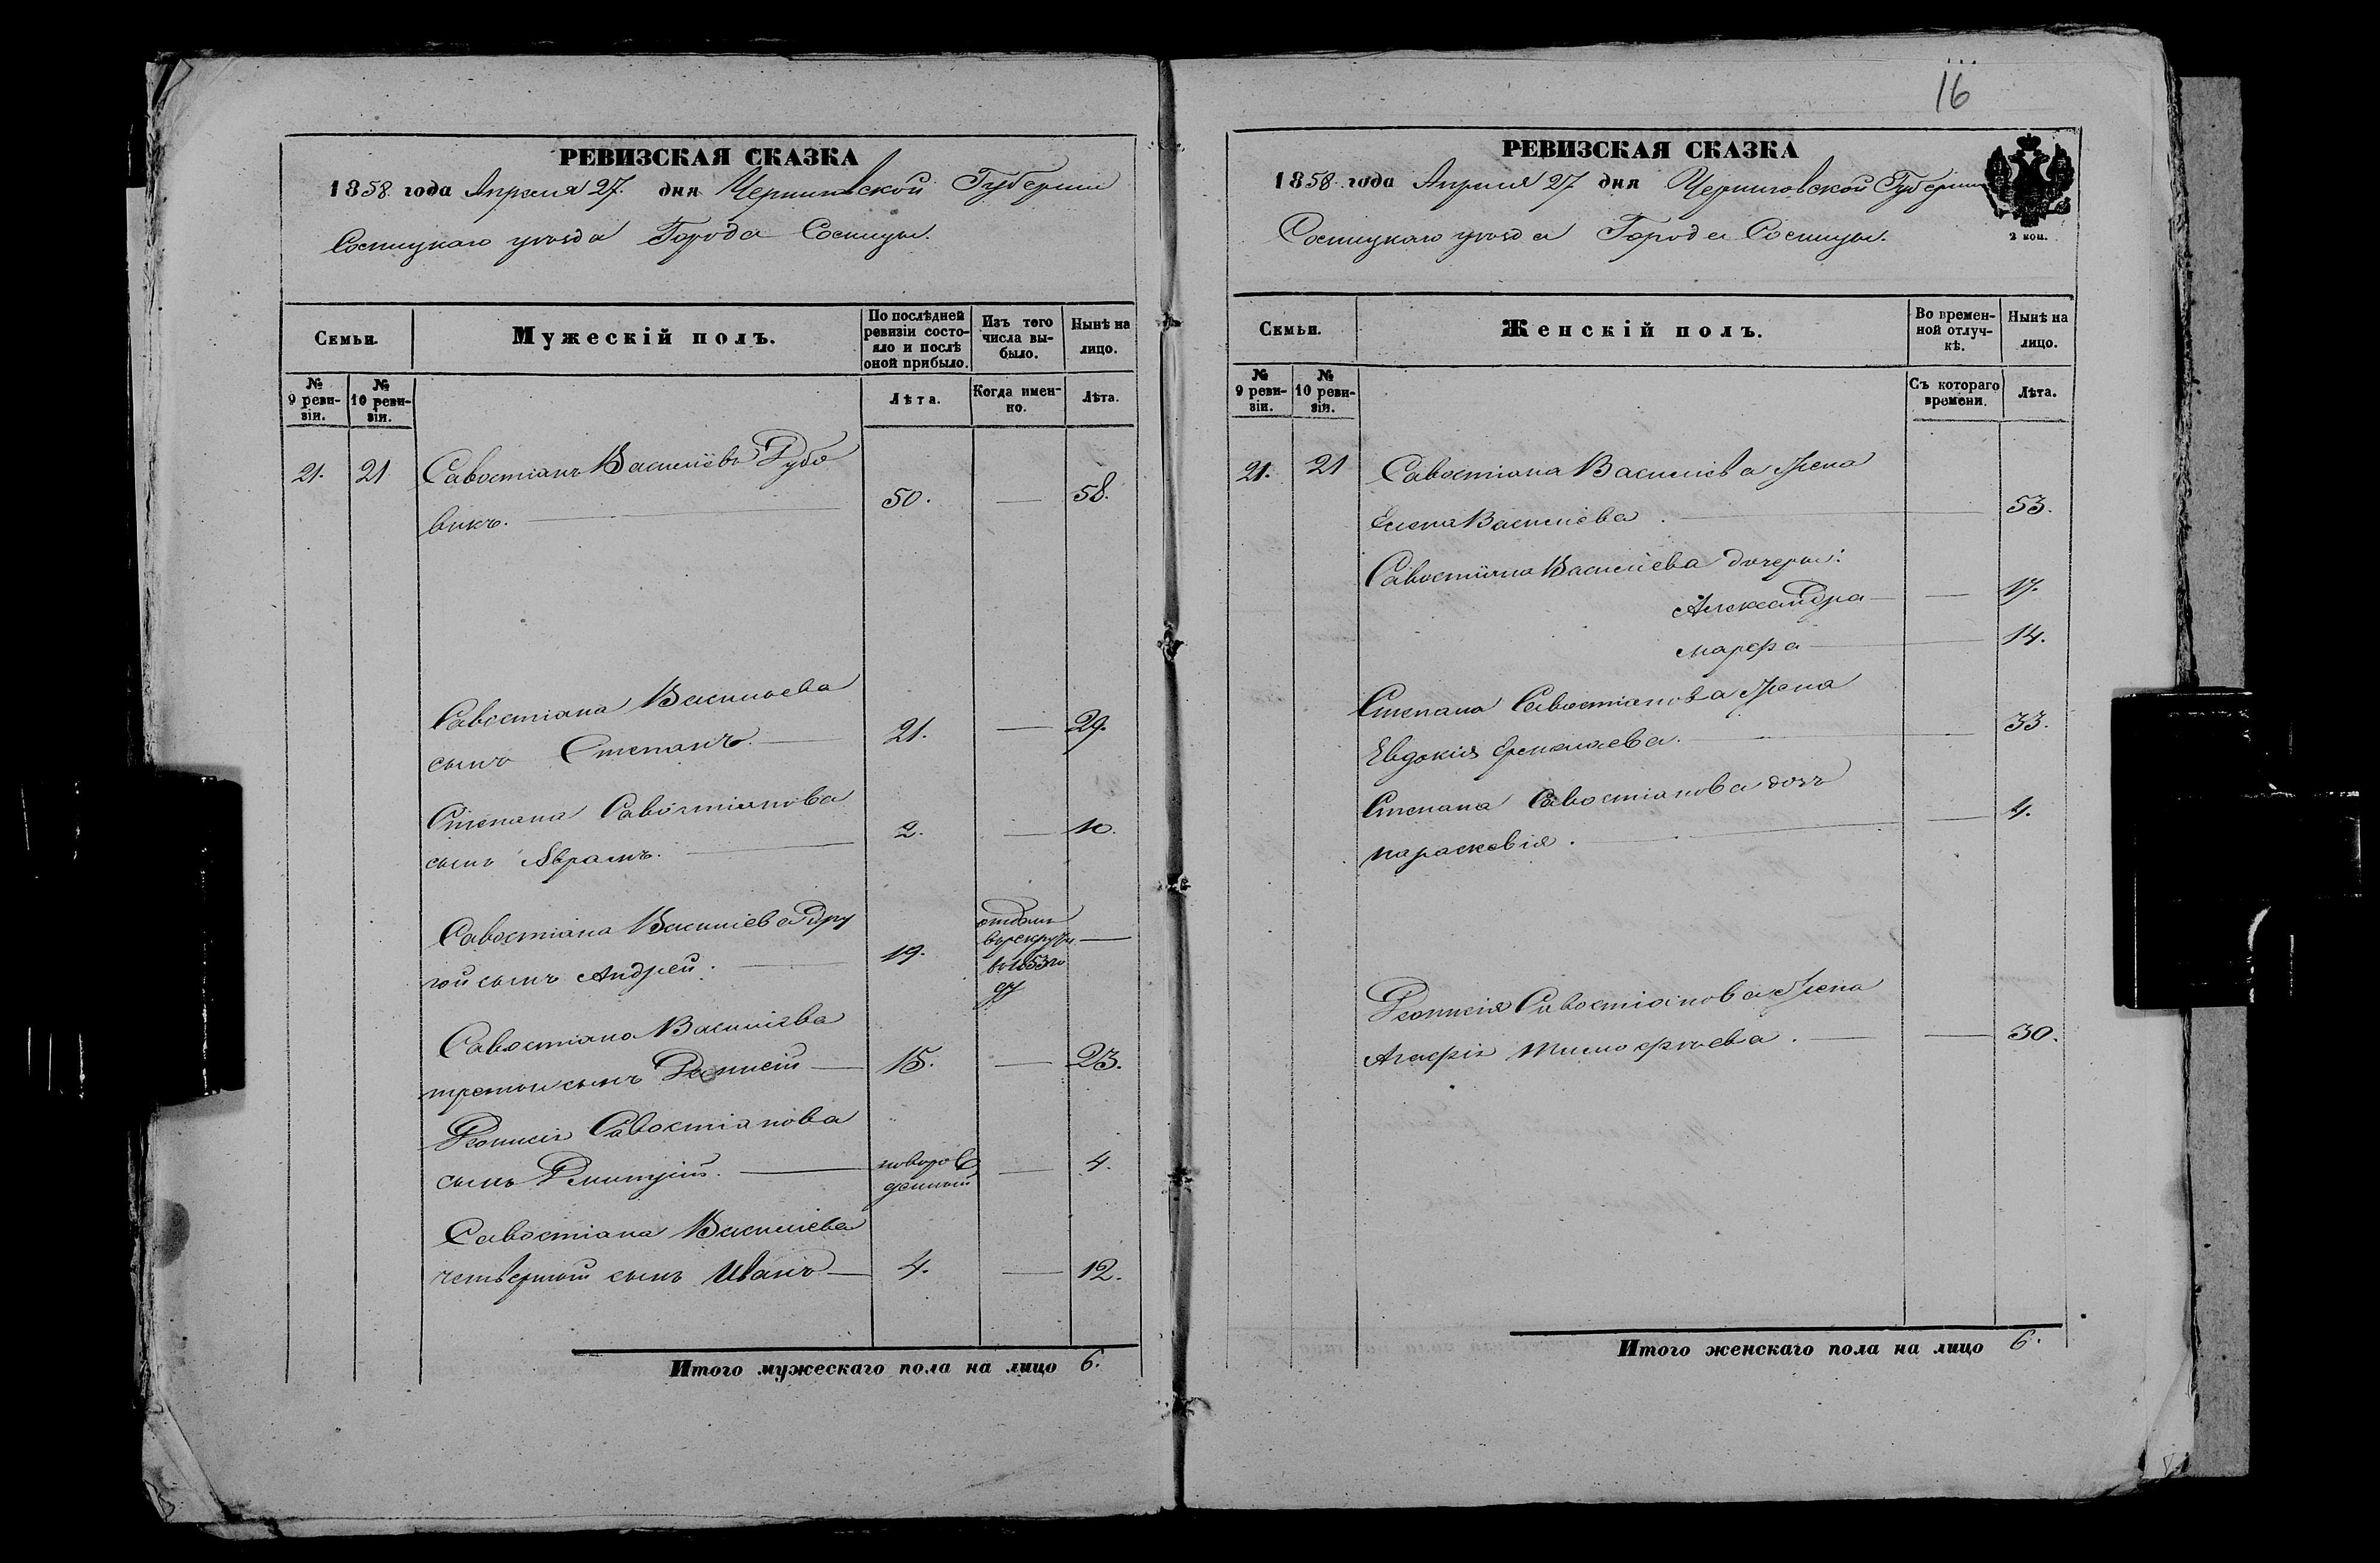 16
РЕВИЗСКАЯ СКАЗКА
1858 года Апреля 27. дня Черниговской Губернии
Сосницкаго уѣзда Города Сосницы.
Семьи.
Мужескій полъ.
По послѣдней
ревизіи состо-
яло и послѣ
оной прибыло.
Изъ того
числа вы-
было.
Нынѣ на
лицо.
№
9 реви-
зіи.
№
10 реви-
зіи.
Лѣта.
Когда имен-
но.
Лѣта.
21. 21 Савостіанъ Василіевъ Рудо
викъ. 50. — 58.
Савостіана Васильева
сынъ Степанъ. 21. — 29.
Степана Савостіанова
сынъ Абрамъ. 2. — 10.
Савостіана Василіева дру
гой сынъ Андрей. 19. —
отданъ
въ рекруты
въ 1853 го
ду
Савостіана Василіева
третий сынъ Деонисій 15. — 23.
Деонисія Савостіанова
сынъ Дмитрій. — 4.
новорож
денный
Савостіана Василіева
четвертый сынъ Иванъ 4. — 12.
Итого мужескаго пола на лицо 6.
РЕВИЗСКАЯ СКАЗКА
1858 года Апреля 27 дня Черниговской Губернии
Сосницкаго уѣзда Города Сосницы.
2 коп.
Семьи.
Женскій полъ.
Во времен-
ной отлуч-
кѣ.
Нынѣ на
лицо.
№
9 реви-
зіи.
№
10 реви-
зіи.
Съ котораго
времени.
Лѣта.
21. 21 Савостіана Василіева Жена
Елена Василіева 53.
Савостіана Василіева дочеры:
Александра — 17.
марфа 14.
Степана Савостіанова Жена
Евдокія 33.
Степана Савостіанова дочь
параскевія. — 4.
Деонисія Савостіанова Жена
Агафія Тимофѣева. — 30.
Итого женскаго пола на лицо 6.